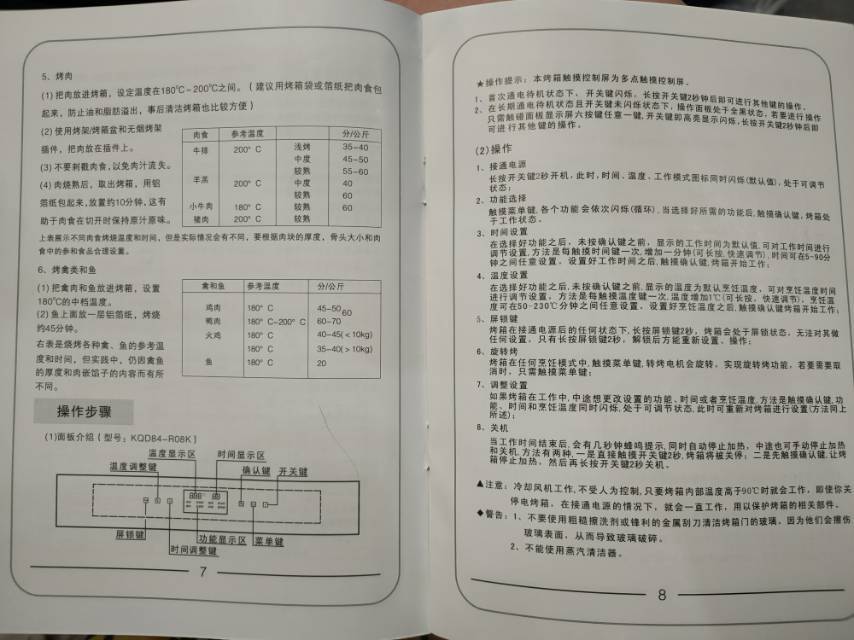 5、烤肉
(1) 把肉放进烤箱，设定温度在180℃-200℃之间。（建议用烤箱袋或箔纸把肉食包
起来，防止油和脂肪溢出，事后清洁烤箱也比较方便）
(2) 使用烤架/烤箱盘和无烟烤架
插件，把肉放在插件上。
(3) 不要刺戳肉食，以免肉汁流失。
(4) 肉烧熟后，取出烤箱，用铝
箔纸包起来，放置约10分钟，这有
助于肉食在切开时保持原汁原味。
肉食 参考温度 分/公斤
牛排 200° C 浅烤 35-40
中度 45-50
较熟 55-60
羊羔 200° C 中度 40
较熟 60
小牛肉 180° C 较熟 60
猪肉 200° C 较熟
上表展示不同肉食烤烧温度和时间，但是实际情况会有不同，要根据肉块的厚度，骨头大小和肉
食中的参和食品合理设置。
6、烤禽类和鱼
(1) 把禽肉和鱼放进烤箱，设置
180℃的中档温度。
(2) 鱼上面放一层铝箔纸，烤烧
约45分钟。
右表是烧烤各种禽、鱼的参考温
度和时间，但实践中，仍因禽鱼
的厚度和肉嵌馅子的内容而有所
不同。
禽和鱼 参考温度 分/公斤
鸡肉 180° C 45-50 60
鸭肉 180° C-200° C 60-70
火鸡 180° C 40-45(＜10kg)
180° C 35-40(＞10kg)
鱼 180° C 20
操作步骤
(1)面板介绍（型号：KQD84-R08K）
温度显示区 时间显示区
温度调整键 确认键 开关键
屏锁键 功能显示区 菜单键
时间调整键
7
★操作提示：本烤箱触摸控制屏为多点触摸控制屏。
1、首次通电待机状态下，开关键闪烁，长按开关键2秒钟后即可进行其他键的操作。
2、在长期通电待机状态且开关键未闪烁状态下，操作面板处于全黑状态，若要进行操作
只需触碰面板显示屏六按键任意一键，开关键即高亮显示闪烁，长按开关键2秒钟后即
可进行其他键的操作。
(2)操作
1、接通电源
长按开关键2秒开机，此时，时间、温度、工作模式图标同时闪烁(默认值)，处于可调节
状态；
2、功能选择
触摸菜单键，各个功能会依次闪烁(循环)，当选择好所需的功能后，触摸确认键，烤箱处
于工作状态。
3、时间设置
在选择好功能之后，未按确认键之前，显示的工作时间为默认值，可对工作时间进行
调节设置，方法是每触摸时间键一次，增加一分钟(可长按，快速调节)，时间可在5-90分
钟之间任意设置。设置好工作时间之后，触摸确认键，烤箱开始工作；
4、温度设置
在选择好功能之后，未按确认键之前，显示的温度为默认烹饪温度，可对烹饪温度时间
进行调节设置，方法是每触摸温度键一次，温度增加1℃(可长按，快速调节)，烹饪温
度可在50-230℃分钟之间任意设置。设置好烹饪温度之后，触摸确认键烤箱开始工作；
5、屏锁键
烤箱在接通电源后的任何状态下，长按屏锁键2秒，烤箱会处于屏锁状态。无法对其做
任何设置，只有长按屏锁键2秒，解锁后方能重新设置、操作；
6、旋转烤
烤箱在任何烹饪模式中，触摸菜单键，转烤电机会旋转，实现旋转烤功能，若要需要取
消时，只需触摸菜单键；
7、调整设置
如果烤箱在工作中，中途想更改设置的功能、时间或者烹饪温度，方法是触摸确认键，功
能、时间和烹饪温度同时闪烁，处于可调节状态，此时可重新对烤箱进行设置(方法同上
所述)；
8、关机
当工作时间结束后，会有几秒钟蜂鸣提示，同时自动停止加热，中途也可手动停止加热
和关机，方法有两种，一是直接触摸开关键2秒，烤箱将被关停；二是先触摸确认键，让烤
箱停止加热，然后再长按开关键2秒关机。
▲注意：冷却风机工作，不受人为控制，只要烤箱内部温度高于90℃时就会工作，即使你关
停电烤箱，在接通电源的情况下，就会一直工作，用以保护烤箱的相关部件。
◆警告：1、不要使用粗糙擦洗剂或锋利的金属刮刀清洁烤箱门的玻璃，因为他们会擦伤
玻璃表面，从而导致玻璃破碎。
2、不能使用蒸汽清洁器。
8